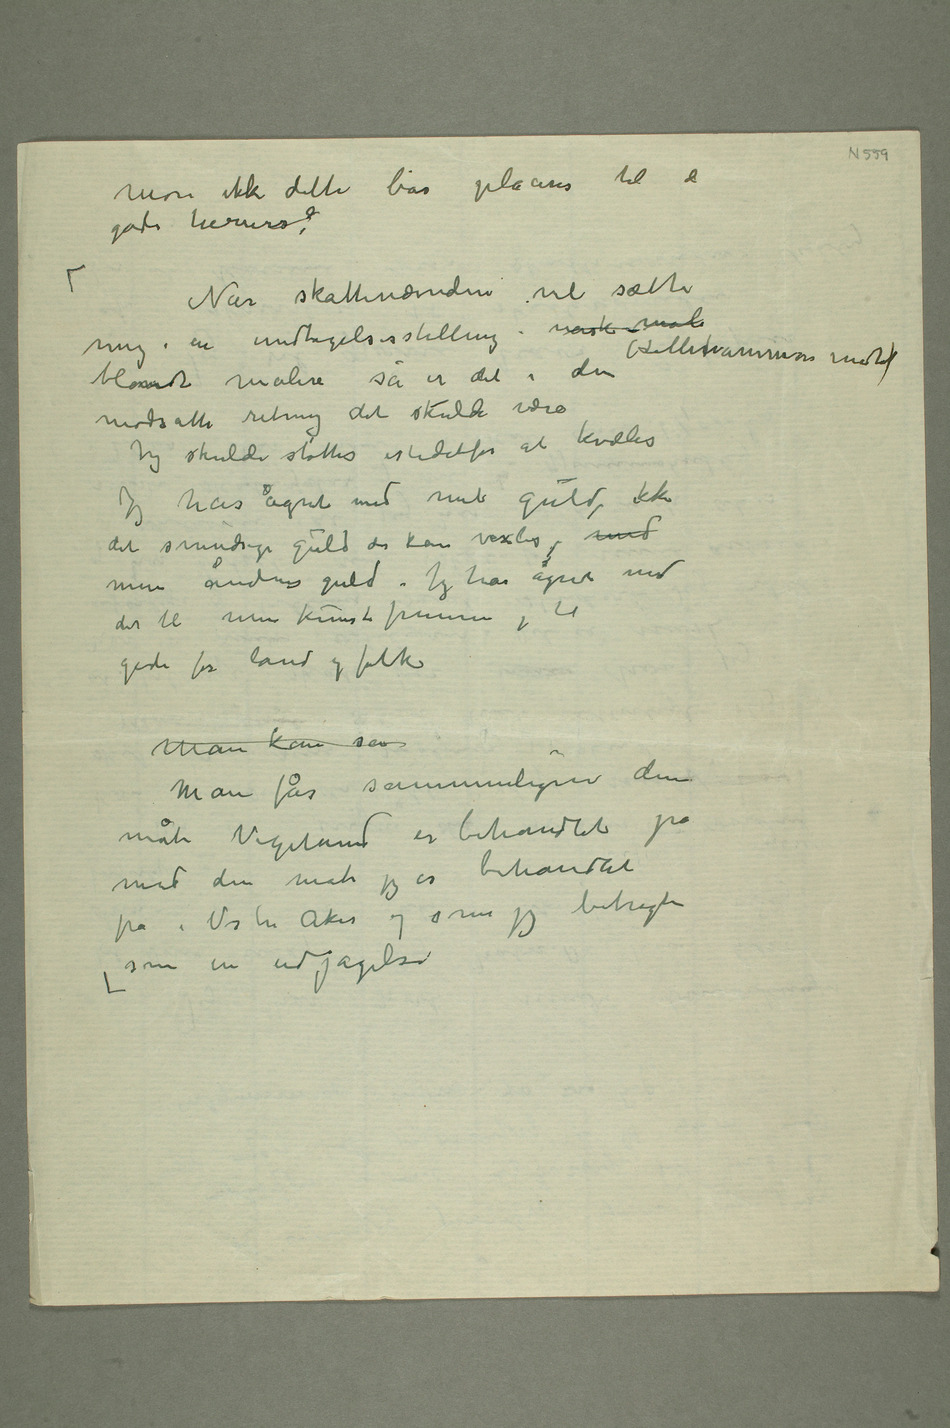 N 559
mon ikke dette bør placeres til d
gode herrers?
Når skattenævnden vil sætte
mig i en undtagelsesstilling i norsk mal
blandt malere så er det i den
modsatte retning det skulde være
Jeg skulde støttes istedetfor at kvæles
Jeg har ågret med mit guld, ikke
det smudsige guld der kan vexles, med
men åndens guld. Jeg har ågret med
det til min kunsts fremme, til
gode for land og folk
Man kan sa
Man får sammenligne den
måte Vigeland er behandlet på
med den måte jeg er behandlet
på i Vestre Aker og som jeg betragter
som en udjagelse